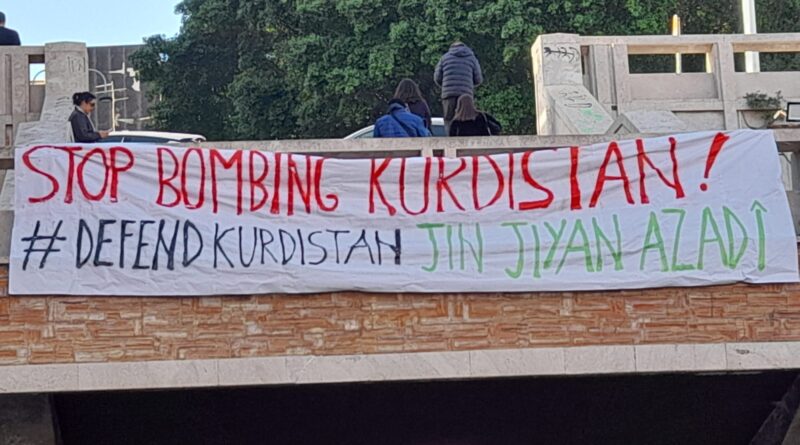 STOP BOMBING KURDISTAN!
#DEFEND KURDISTAN JIN JIYAN AZADÎ